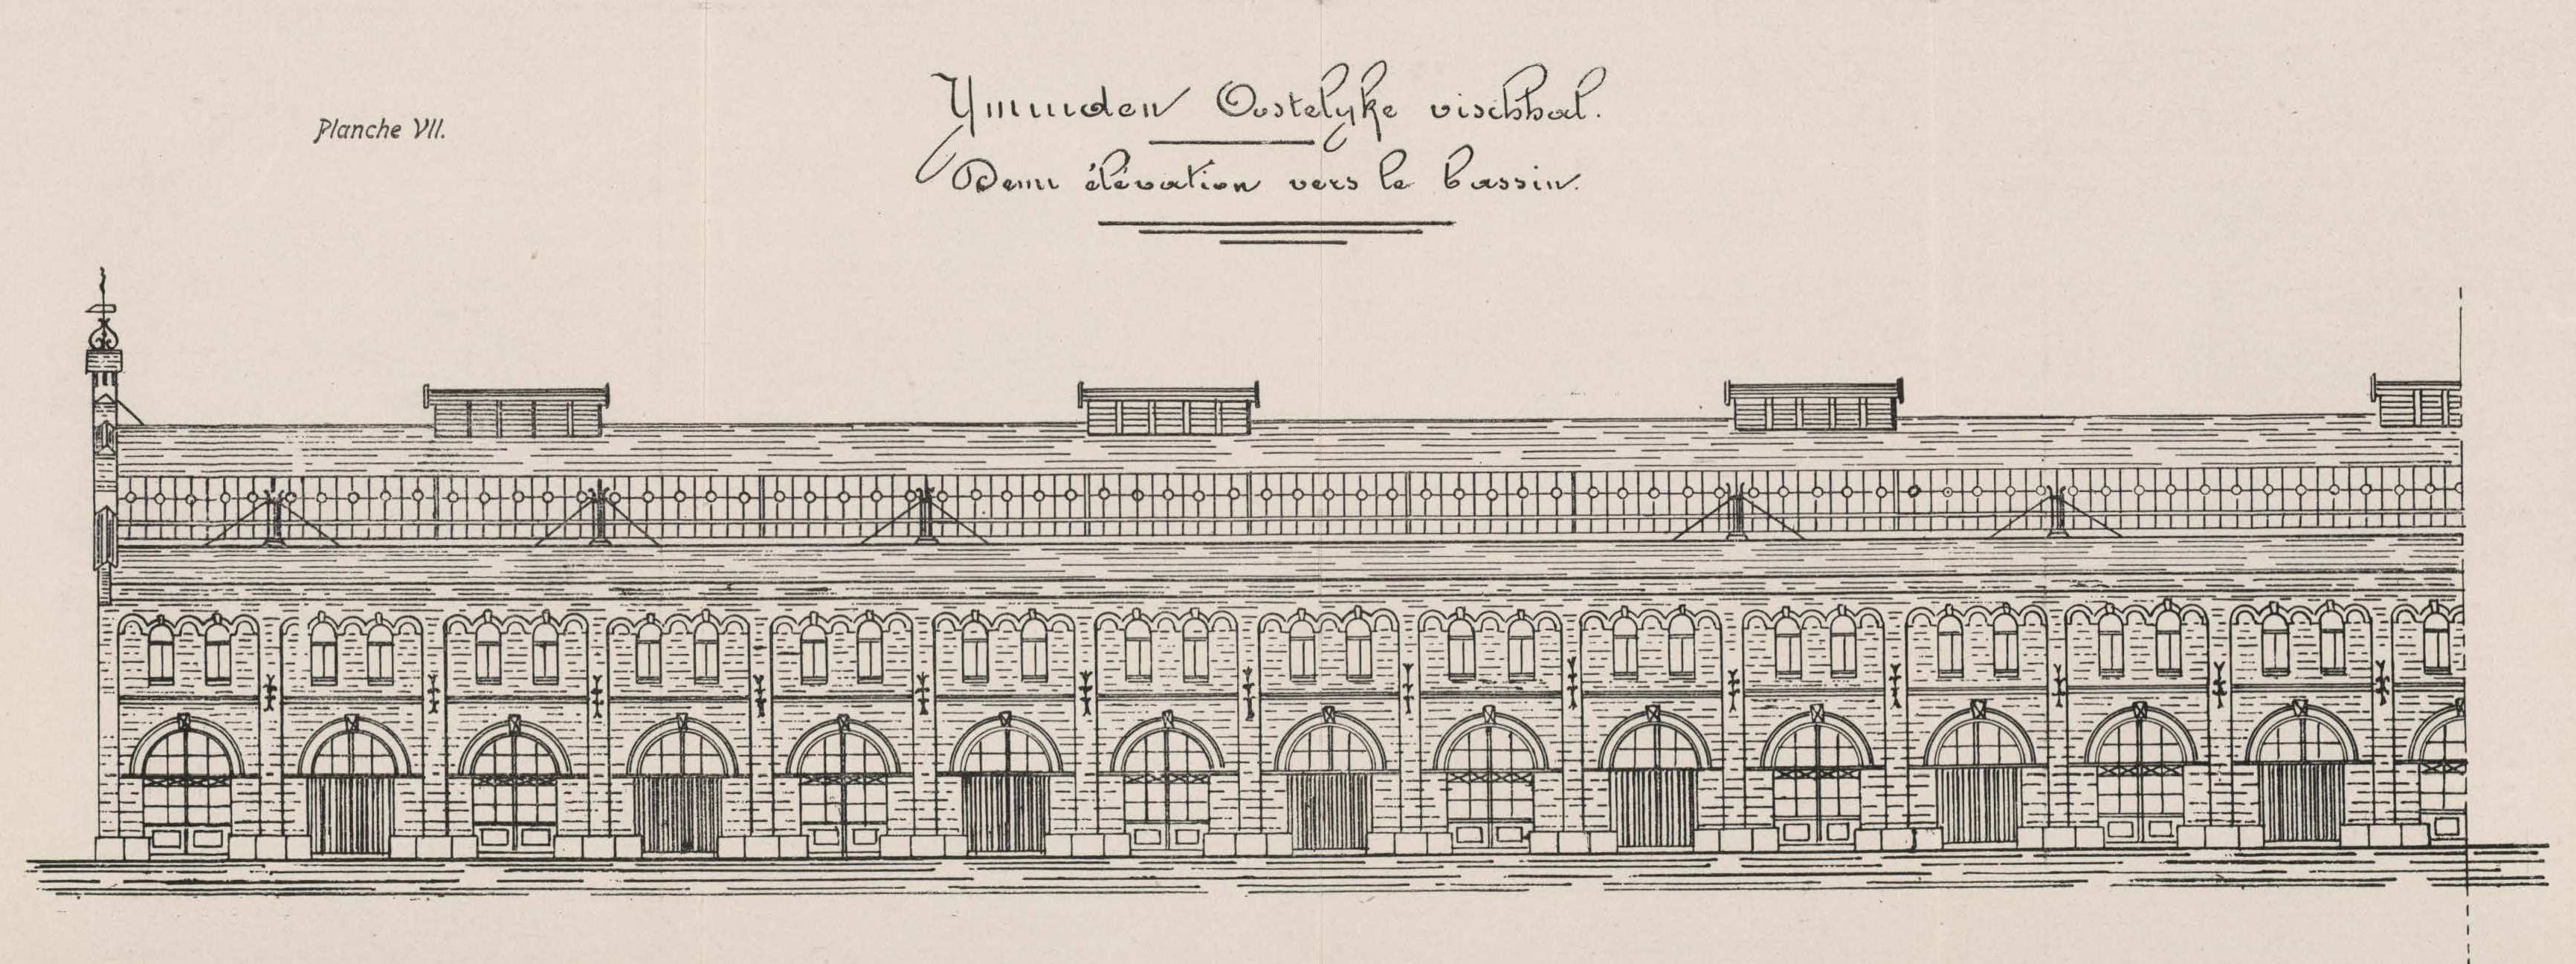 Planche VII.
Ymuiden Oostelyke vischhal.
Demi élévation vers le bassin.